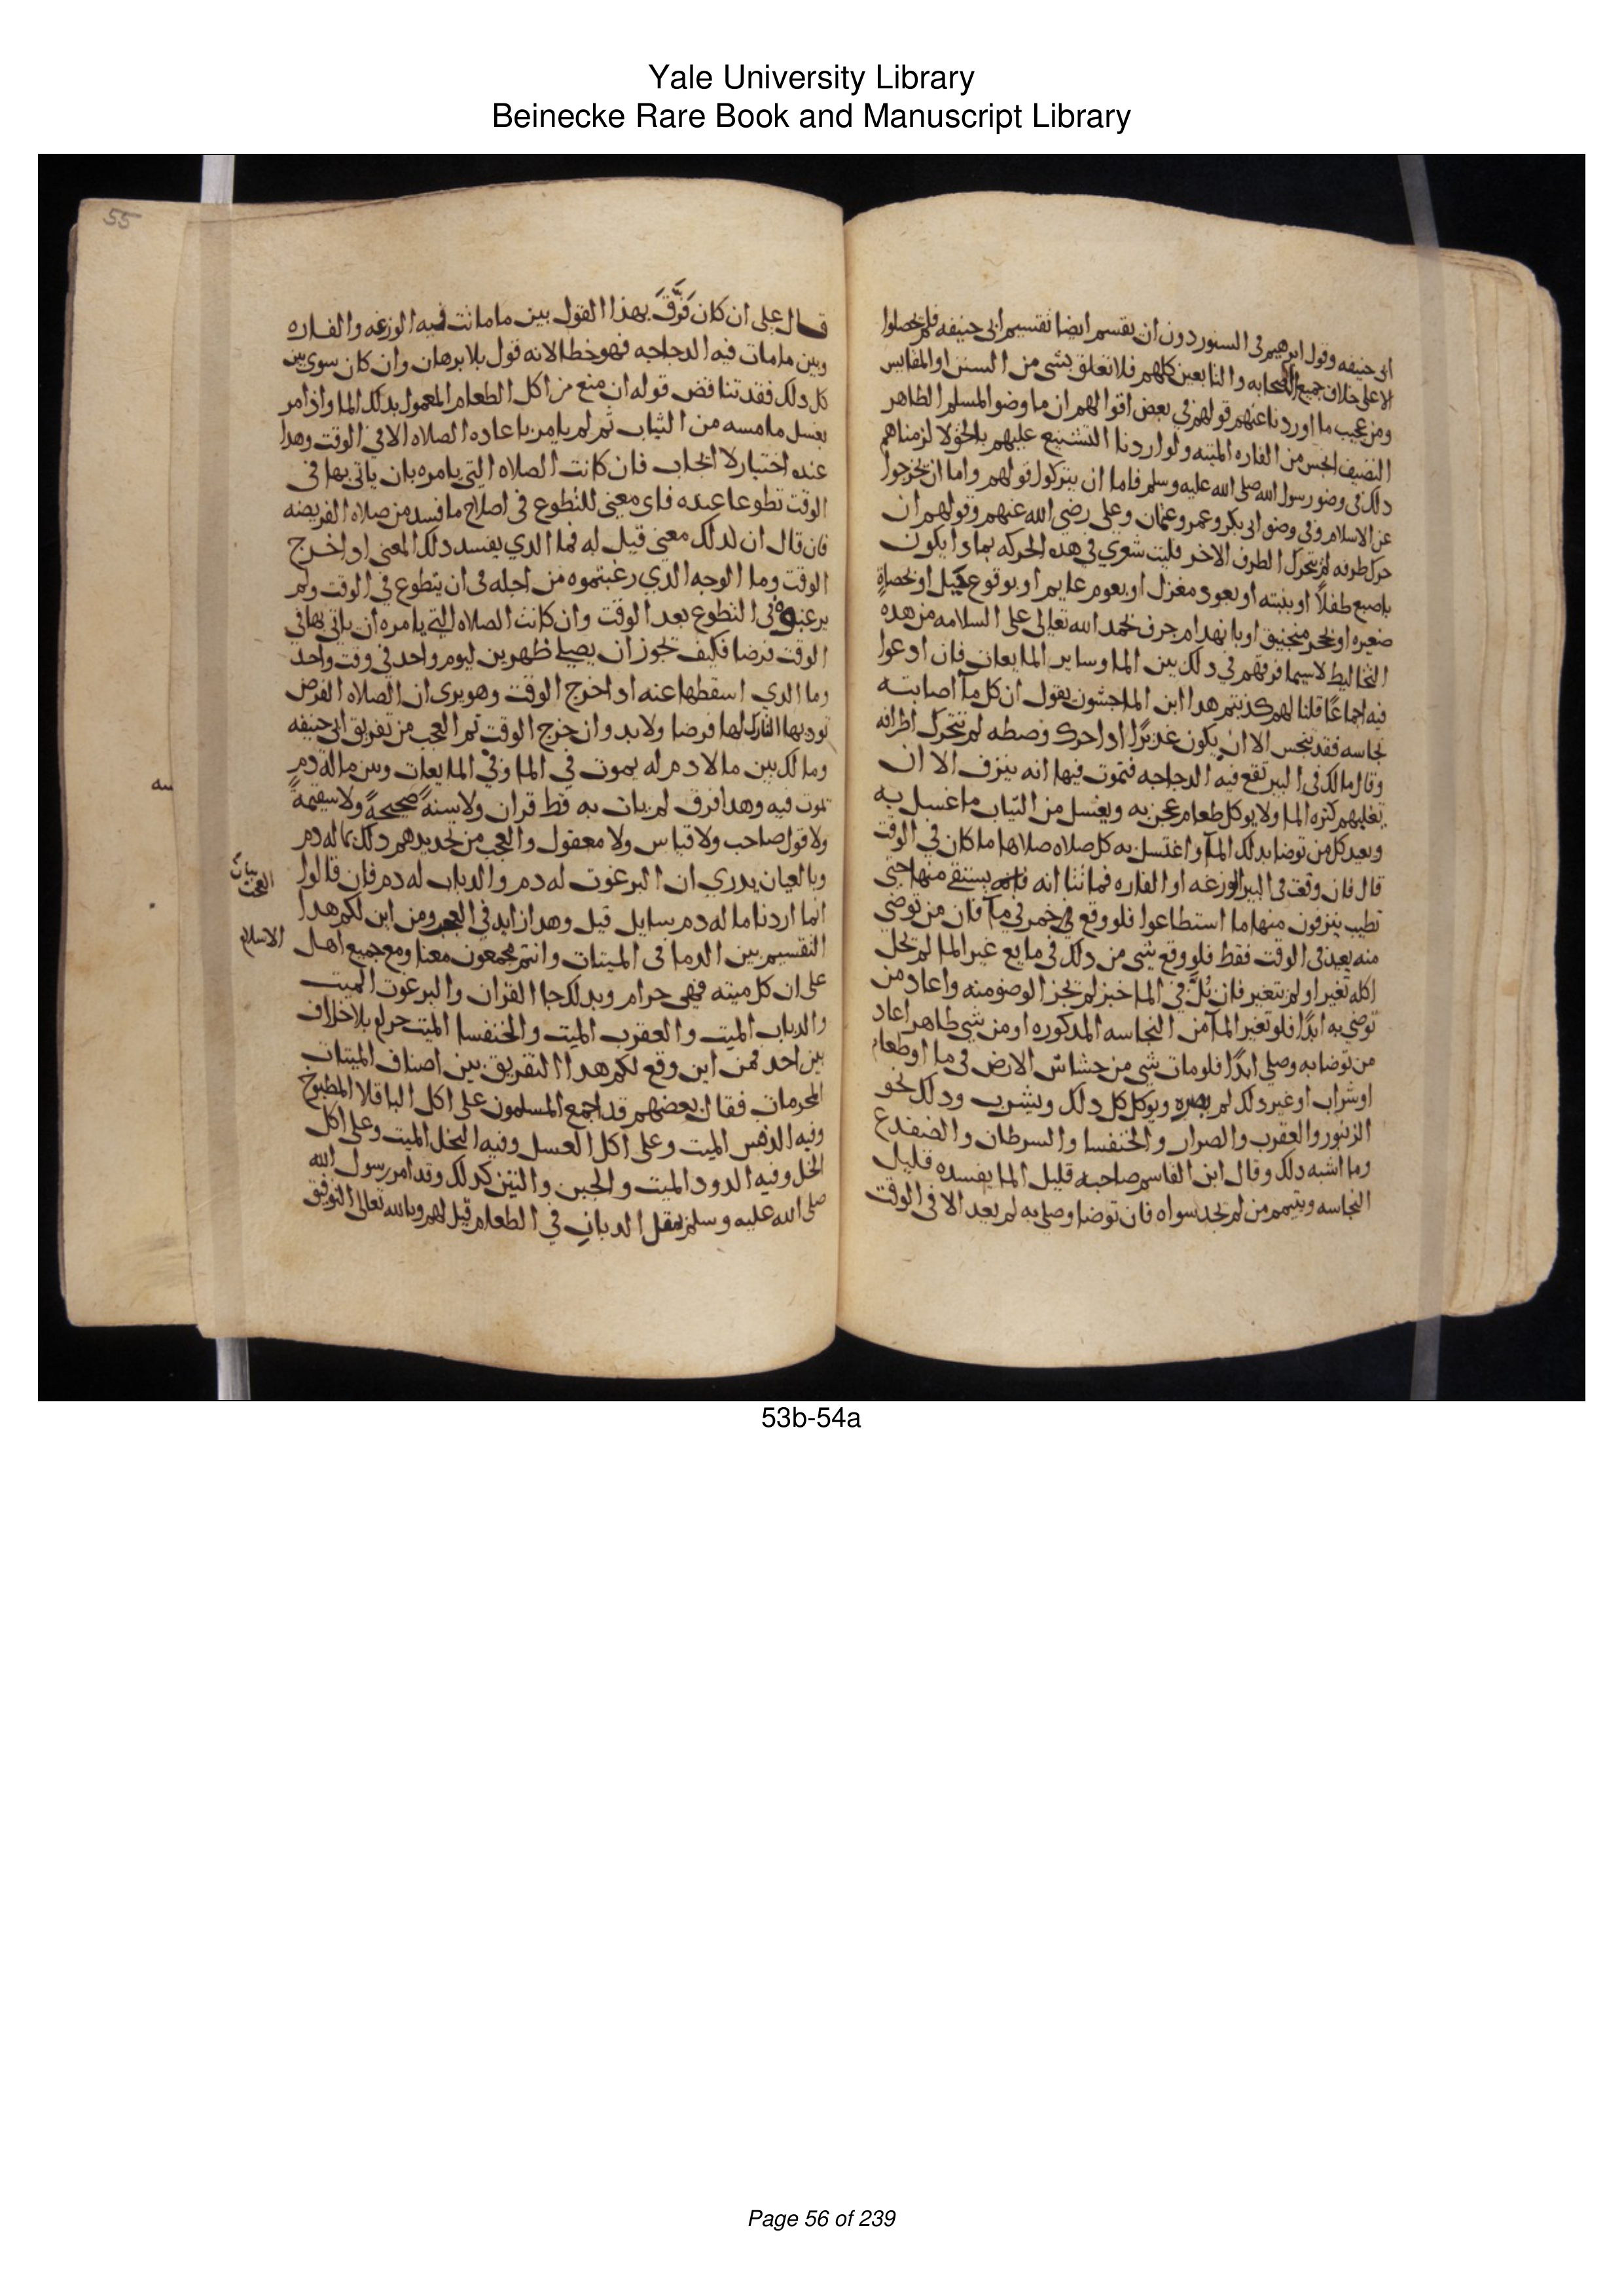 Yale University Library
Beinecke Rare Book and Manuscript Library
ابى حنيفه وقول ابرهيم فى السنور دون ان يقسم ايضا تقسيم ابى حنيفه فلم يحصلوا
الا على خلاف جميع الصحابه والتابعين كلهم فلا تعلق بشى من السنن او المقايس
ومن عجيب ما اوردنا عنهم قولهم فى بعض اقوالهم ان ما وضو المسلم الطاهر
النضيف انجس من الفاره الميته ولو اردنا التشنيع عليهم بالحق لالزمناهم
دلك فى وضو رسول الله صلى الله عليه وسلم فاما ان يتركوا قولهم واما ان يخرجوا
عن الاسلام وفى وضو ابى بكر وعمر وعثمان وعلى رضى الله عنهم وقولهم ان
حرك طرفه لم يتحرك الطرف الاخر فليت شعري فى هده الحركه بمادا يكون
باصبع طفل او بنبته او بعود مغزل او بعوم عايم او بوقوع فيل او بحصاة
صغيره او بحجر منجنيق او بانهدام جرف نحمد الله تعالى على السلامه من هده
التخاليط لاسيما فرقهم فى دلك بين الما وساير المايعات فان ادعوا
فيه اجماعا قلنا لهم كذبتم هدا ابن الماجشون يقول ان كل ما اصابته
نجاسه فقد ينجس الا ان يكون غديرا ادا حرك وصطه لم تتحرك اطرافه
وقال مالك فى البير تقع فيه الدجاجه فتموت فيها انه ينزف الا ان
تغلبهم كثره الما ولا يوكل طعام عجن به ويغسل من الثياب ما غسل به
ويعيد كل من توضا بدلك الما او اغتسل به كل صلاه صلاها ما كان فى الوقت
قال فان وقعت فى البير الوزغه او الفاره فماتتا انه يستقى منها حتى
تطيب ينزفون منها ما استطاعوا فلو وقع خمر فى ما فان من توضى
منه يعيد فى الوقت فقط فلو وقع شى من دلك فى مايع غير الما لم يحل
اكله تغير او لم يتغير فان بُلَّ فى الما خبز لم يجز الوضو منه واعاد من
توضى به ابدا فلو تغير الما من النجاسه المدكوره او من شى طاهر اعاد
من توضا به وصلى ابدا فلو مات شى من خشاش الارض فى ما او طعام
او شراب او غير دلك لم يضره ويوكل كل دلك ويشرب ودلك نحو
الزنبور والعقرب والصرار والخنفسا والسرطان والضفدع
وما اشبه دلك وقال ابن القاسم صاحبه قليل الما يفسده قليل
النجاسه ويتيمم من لم يجد سواه فان توضا وصلى به لم يعد الا فى الوقت
55
قال على ان كان فَرَّقَ بهذا القول بين ما ماتت فيه الوزغه والفاره
وبين ما مات فيه الدجاجه فهو خطا لانه قول بلا برهان وان كان سوى بين
كل دلك فقد تناقض قوله ان منع من اكل الطعام المعمول بدلك الما واذ امر
بغسل ما مسه من الثياب ثم لم يامر باعاده الصلاه الا فى الوقت وهدا
عنده اختيار لا ايجاب فان كانت الصلاه التى يامره بان ياتى بها فى
الوقت تطوعا عنده فاى معنى للتطوع فى اصلاح ما فسد من صلاه الفريضه
فان قال ان لدلك معنى قيل له فما الدي يفسد دلك المعنى ادا خرج
الوقت وما الوجه الدي رغبتموه من اجله فى ان يتطوع فى الوقت ولم
يرغبوه فى التطوع بعد الوقت وان كانت الصلاه التى يامره ان ياتى بها فى
الوقت فرضا فكيف تجوز ان يصلى ظهرين ليوم واحد فى وقت واحد
وما الدي اسقطها عنه ادا خرج الوقت وهو يرى ان الصلاه الفرض
يودى بها التارك لها فرضا ولابد وان خرج الوقت ثم العجب من تفريق ابى حنيفه
ومالك بين ما لا دم له يموت فى الما وفى المايعات وبين ما له دم
تموت فيه وهدا فرق لم يات به قط قران ولا سنةٌ صحيحةٌ ولا سقيمةٌ
ولا قول صاحب ولا قياس ولا معقول والعجب من تحديدهم دلك بما له دم
وبالعيان يدري ان البرغوث له دم والدباب له دم فان قالوا
انما اردنا ما له دم سايل قيل وهدا زايد فى العجب ومن اين لكم هدا
التقسيم بين الدما فى الميتات وانتم مجمعون معنا ومع جميع اهل الاسلام
على ان كل ميته فهى حرام وبدلك جا القران والبرغوث الميت
والدباب الميت والعقرب الميت والخنفسا الميت حرام بلا خلاف
بين احد فمن اين وقع لكم هدا التفريق بين اصناف الميتات
المحرمات فقال بعضهم قد اجمع المسلمون على اكل الباقلا المطبوخ
وفيه الدقس الميت وعلى اكل العسل وفيه النحل الميت وعلى اكل
الخل وفيه الدود الميت والجبن والتين كدلك وقد امر رسول الله
صلى الله عليه وسلم بمقل الدباب فى الطعام قيل لهم وبالله تعالى التوفيق
بيان
العجب
53b-54a
Page 56 of 239